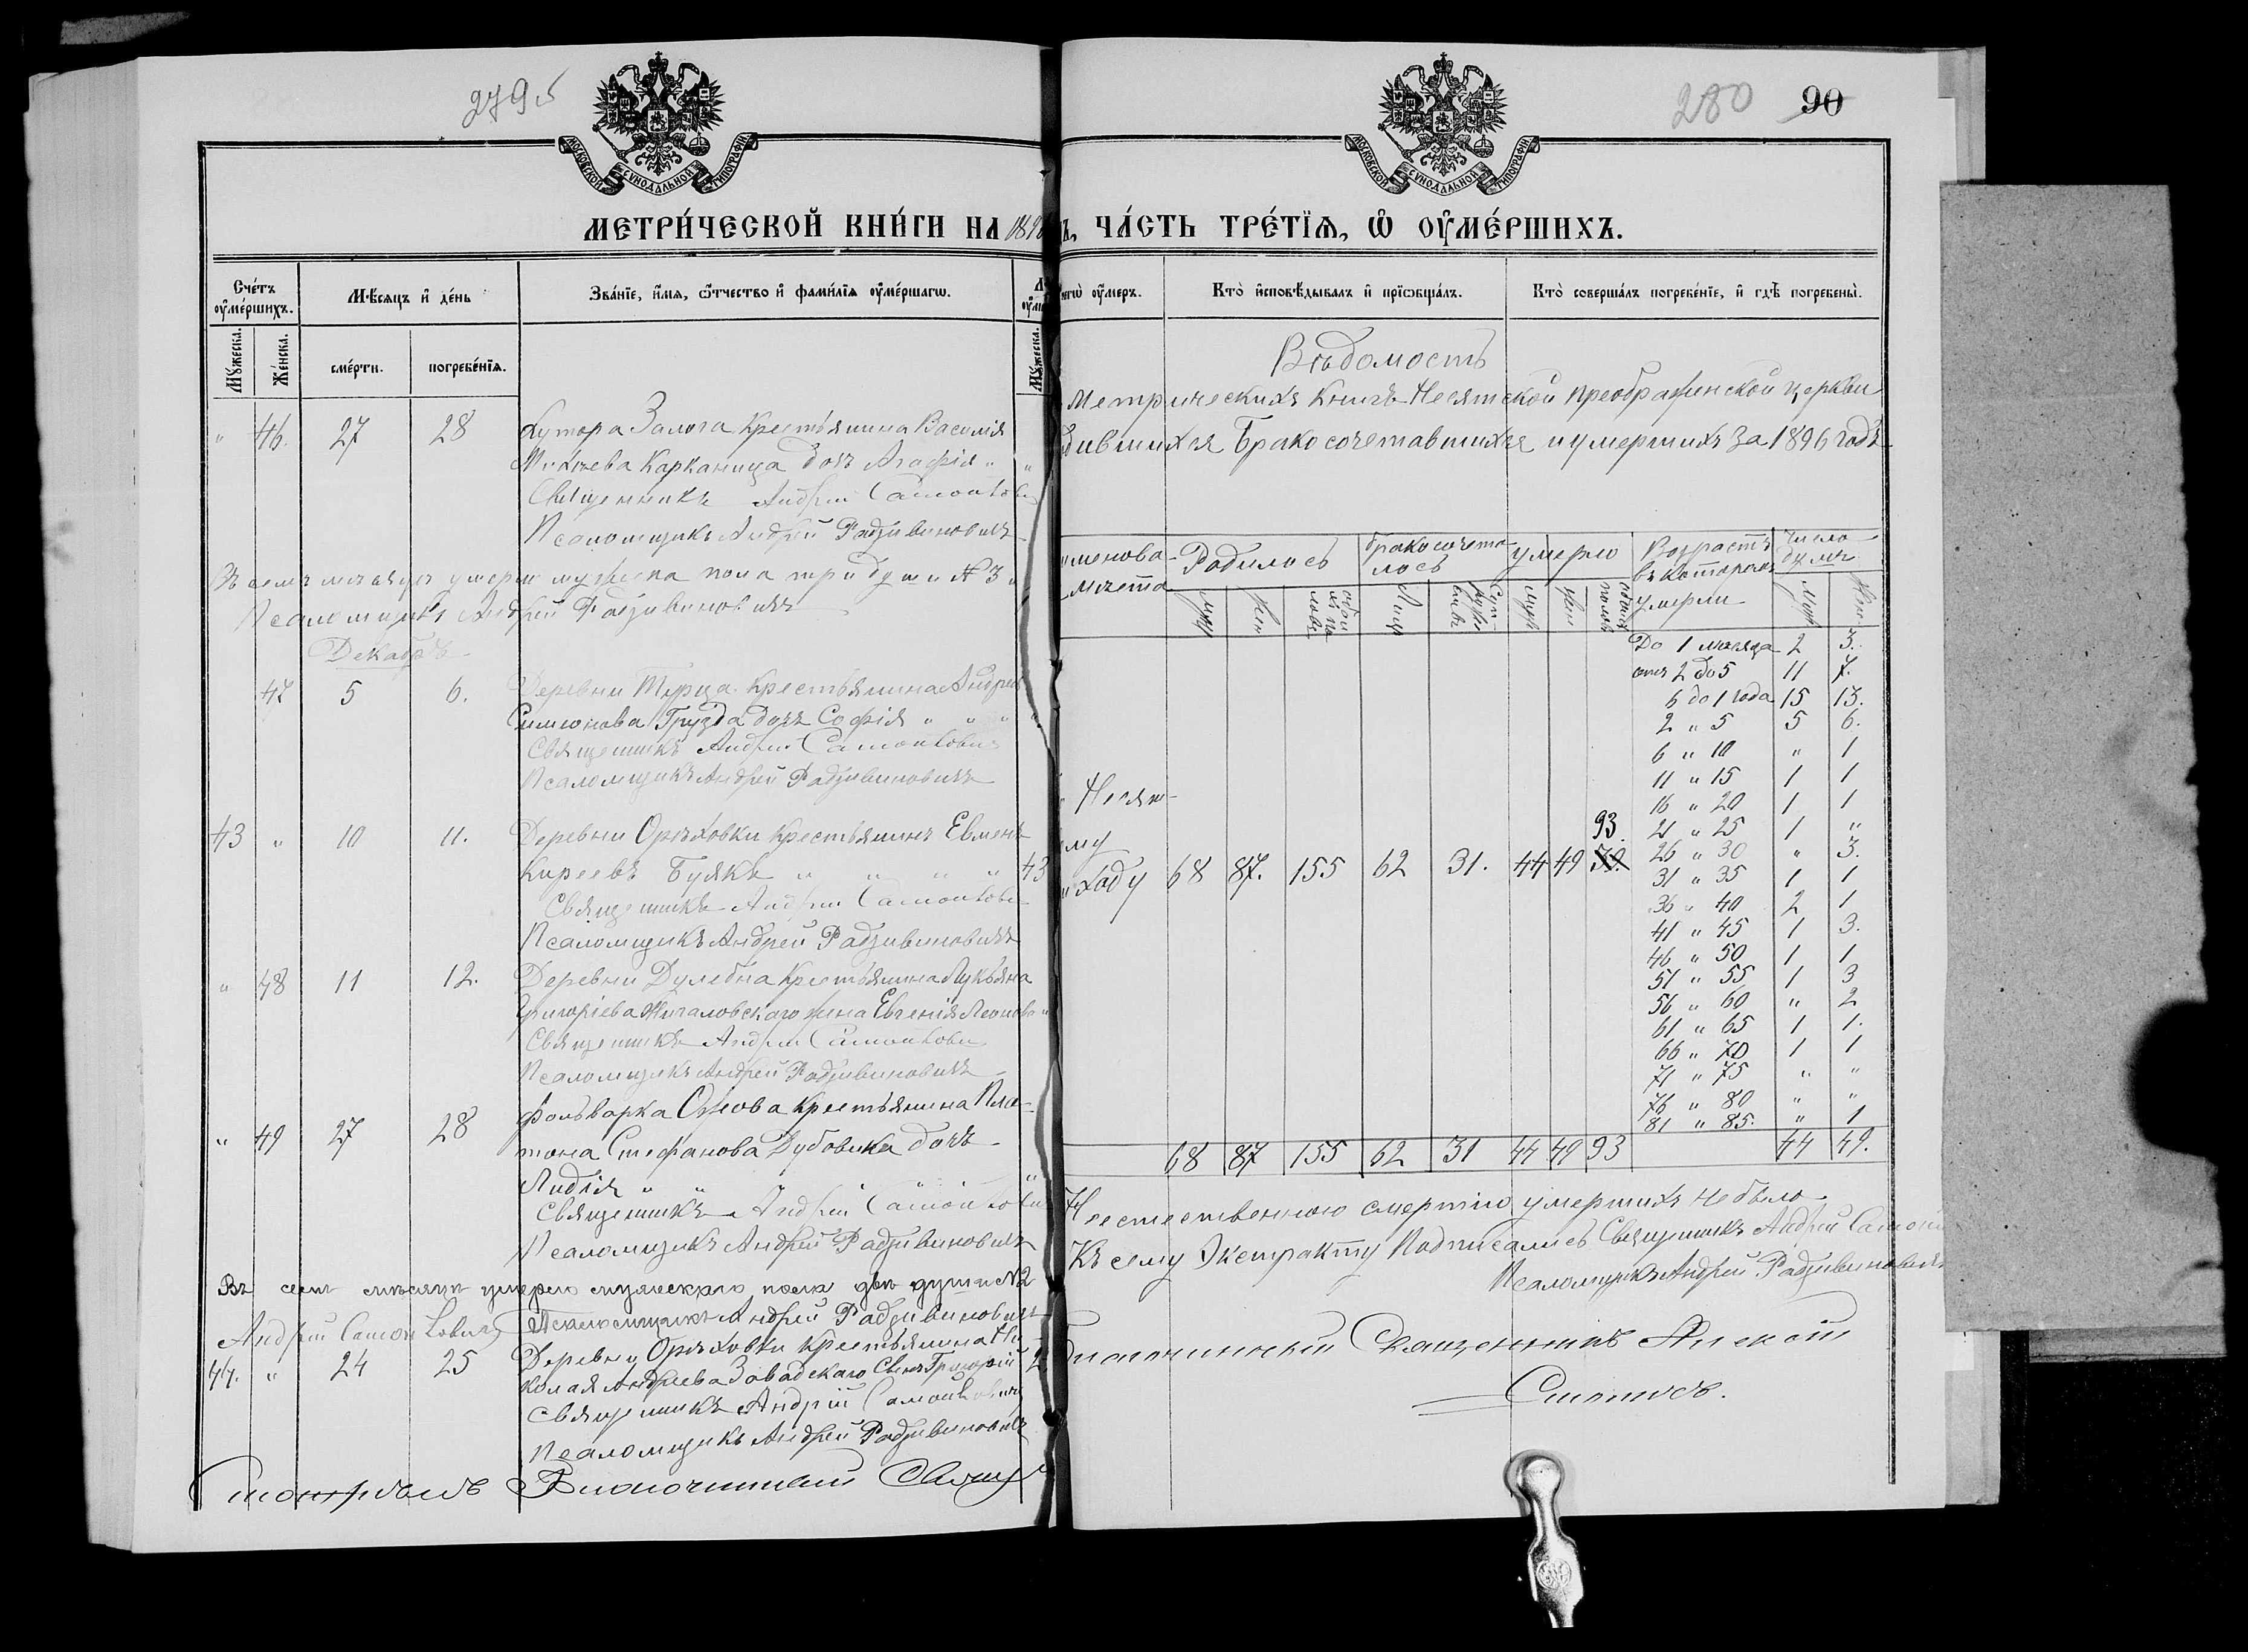 279 об
МОСКОВСКОЙ СУНОДАЛЬНОЙ ТИПОГРАФІИ
МЕТРИ́ЧЕСКОЙ КНИ́ГИ НА 1896
Сче́тъ ᲂу҆ме́ршихъ.
Мѣ́сяцъ и҆ де́нь
Зва́нїе, и҆́мѧ, ѻ҆́тчество и҆ фами́лїѧ ᲂу҆ме́ршагѡ.
Мꙋ́жеска.
Же́нска.
сме́рти.
погребе́нїѧ.
Мꙋ́жеска.
" 46. 27 28 Хутора Залога крестьянина Василія
Карканица дочь Агафія "
Священникъ Андрей Самойлови
Псаломщикъ Андрей Радзивиновичъ
Въ семъ мѣсяцѣ умерло мужеска пола три души № 3
Псаломщикъ Андрей Радзивиновичъ
Декабрь
47 5 6. Деревни Турца крестьянина Андрея
Симеонова Грузда дочь Софія " " "
Священникъ Андрей Самойлови
Псаломщикъ Андрей Радзивиновичъ
43 " 10 11. Деревни Орѣховки крестьянинъ Евмені
Киреевъ Буякъ " " " " 43
Священникъ Андрей Самойлови
Псаломщикъ Андрей Радзивиновичъ
" 48 11 12. Деревни Дулебна крестьянина Лукьяна
Григоріева Жигаловскаго жена Евгенія Леонова "
Священникъ Андрей Самойлови
Псаломщикъ Андрей Радзивиновичъ
" 49 27 28 Фольварка Орлова крестьянина Пла-
тона Стефанова Дубовика дочь
Лидія " "
Священникъ Андрей Самойлови
Псаломщикъ Андрей Радзивиновичъ
Въ семъ мѣсяцѣ умерло мужескаго пола двѣ души № 2
Андрей Самойловичъ Псаломщикъ Андрей Радзивиновичъ
44. " 24 25 Деревни Орѣховки крестьянина Ни
колая Андреева Завадскаго сынъ Григорій 2
Священникъ Андрей Самойловичъ
Псаломщикъ Андрей Радзивиновичъ
Благочинный Свящ
280 90
МОСКОВСКОЙ СУНОДАЛЬНОЙ ТИПОГРАФІИ
ъ, ЧА́СТЬ ТРЕ́ТЇѦ, Ѡ҆ ᲂУ҆МЕ́РШИХЪ.
чегѡ̀ ᲂу҆́меръ.
Кто̀ и҆сповѣ́дывалъ и҆ прїѡбща́лъ.
Кто̀ соверша́лъ погребе́нїе, и҆ гдѣ̀ погребены̀.
Вѣдомость
Метрическихъ книгъ Несятской Преображенской церкви
дившихся Бракосочетавшихся и умершихъ за 1896 годъ
именова- Родилось бракосочета- умерло Возрастъ Число
мѣста лось въ которомъ душъ
умерли
Муж Жен Лицъ Муж Жен Муж Жен
До 1 мѣсяца 2 3.
отъ 2 до 5 11 7.
6 до 1 года 15 13.
2 " 5 5 6.
6 " 10 " 1
11 " 15 1 1
Несят-
16 " 20 1 1
93. 21 " 25 1 "
ему
26 " 30 " 3.
ходу 68 87. 155 62 31. 44 49
31 " 35 1 1
36 " 40 2 1
41 " 45 1 3.
46 " 50 1 1
51 " 55 1 3
56 " 60 " 2
61 " 65 1 1.
66 " 70 1 1
71 " 75 " "
76 " 80 " "
81 " 85. " 1
68 87 155 62 31 44 49 93 44 49.
Неестественною смертію умершихъ не было
Къ сему Экстракту Подписались Священникъ Андрей Самой
Псаломщикъ Андрей Радзивиновичъ
Благочинный Священникъ